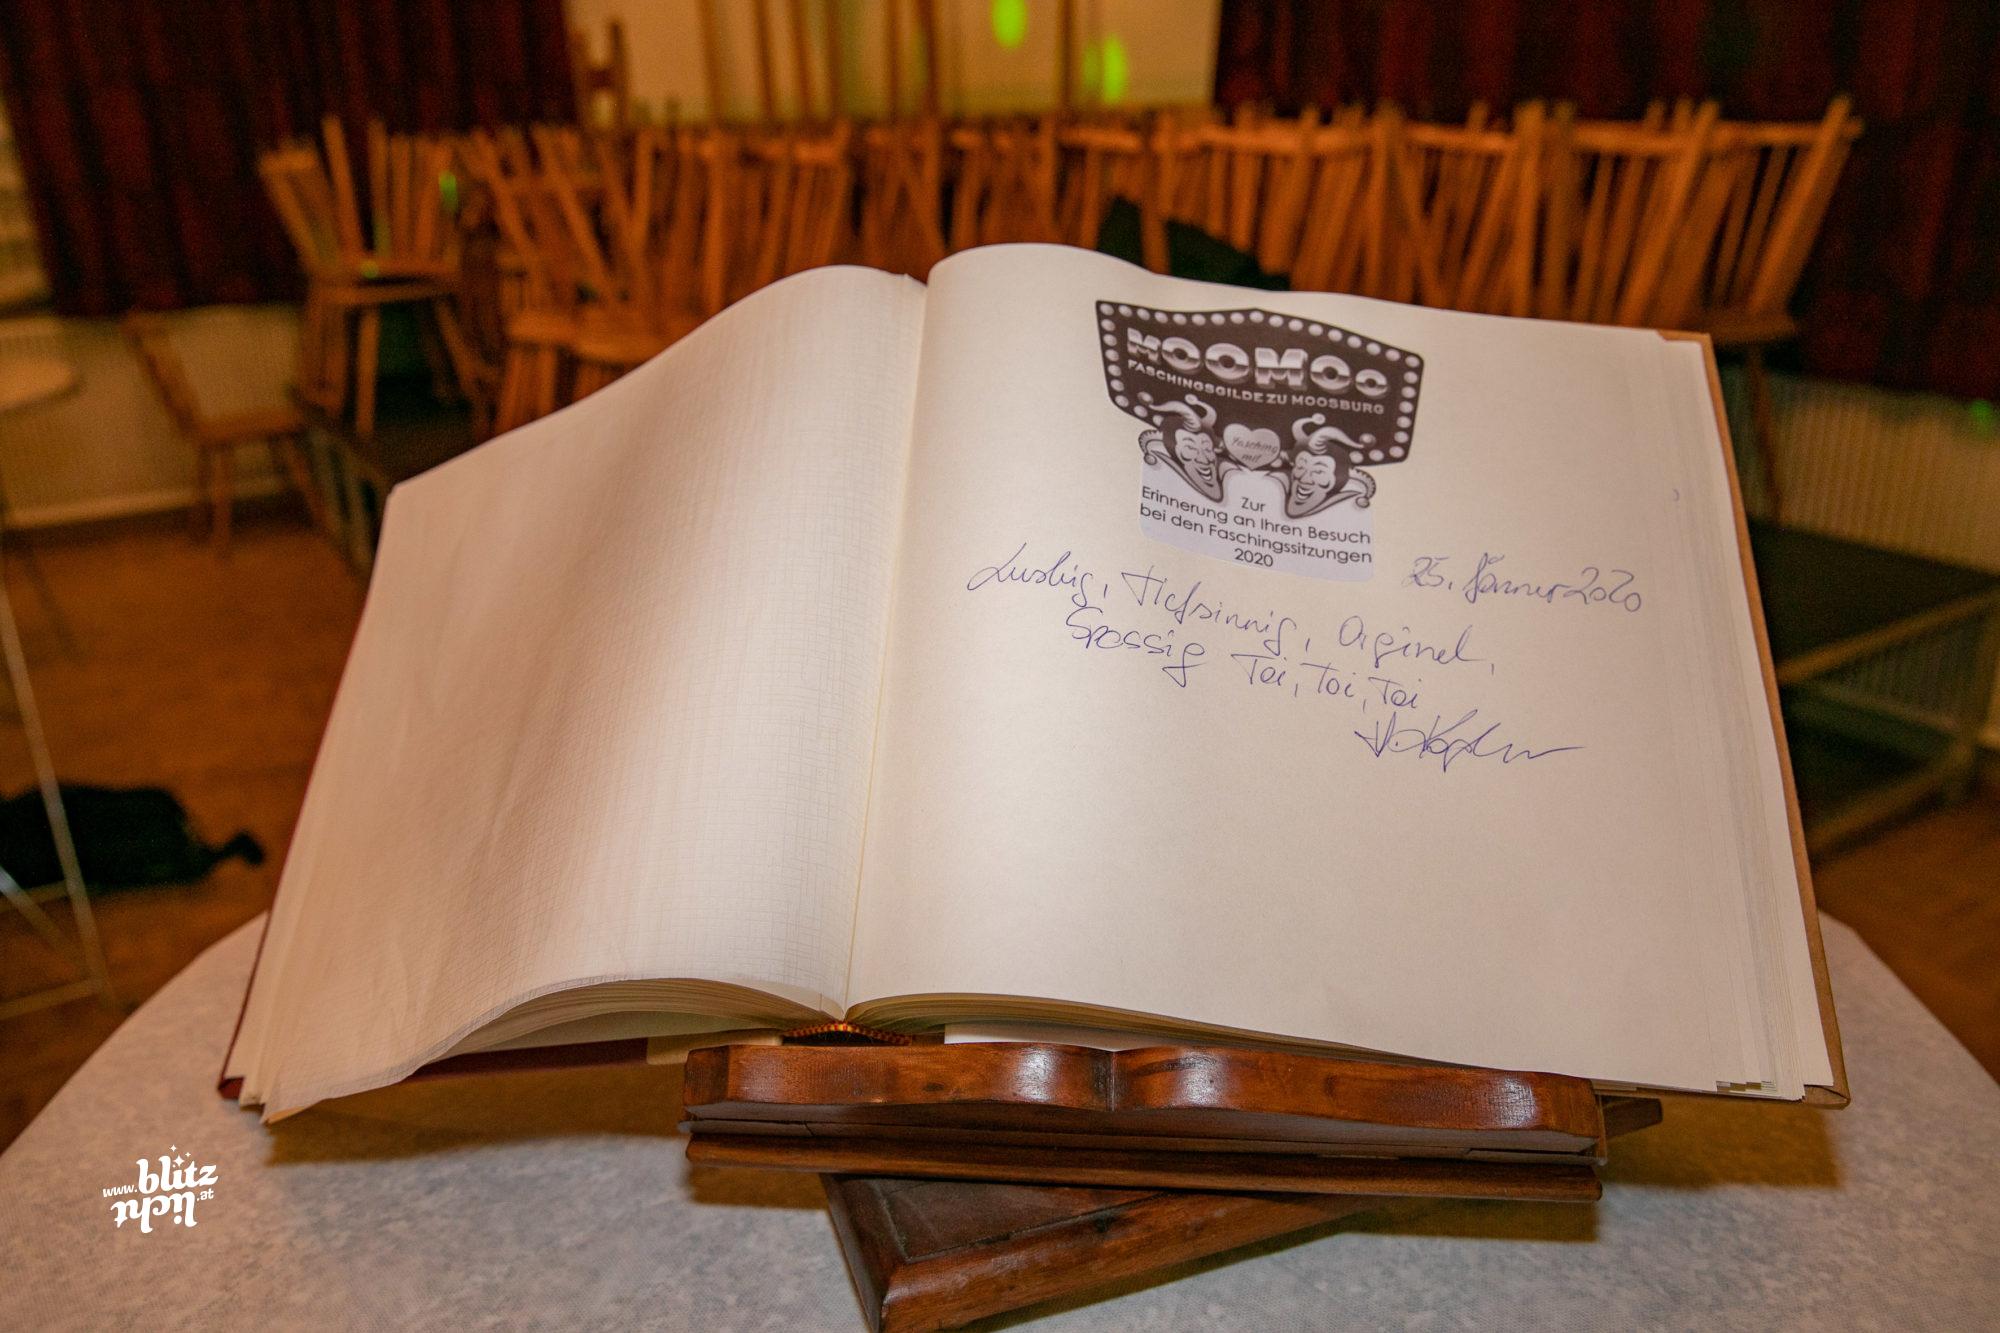 MOOMOO
FASCHINGSGILDE ZU MOOSBURG
Fasching
mit
Zur
Erinnerung an Ihren Besuch
bei den Faschingssitzungen
2020
25. Jänner 2020
Lustig, Tiefsinnig, Orginel,
Spassig Toi, Toi, Toi
www.blitz
licht.at